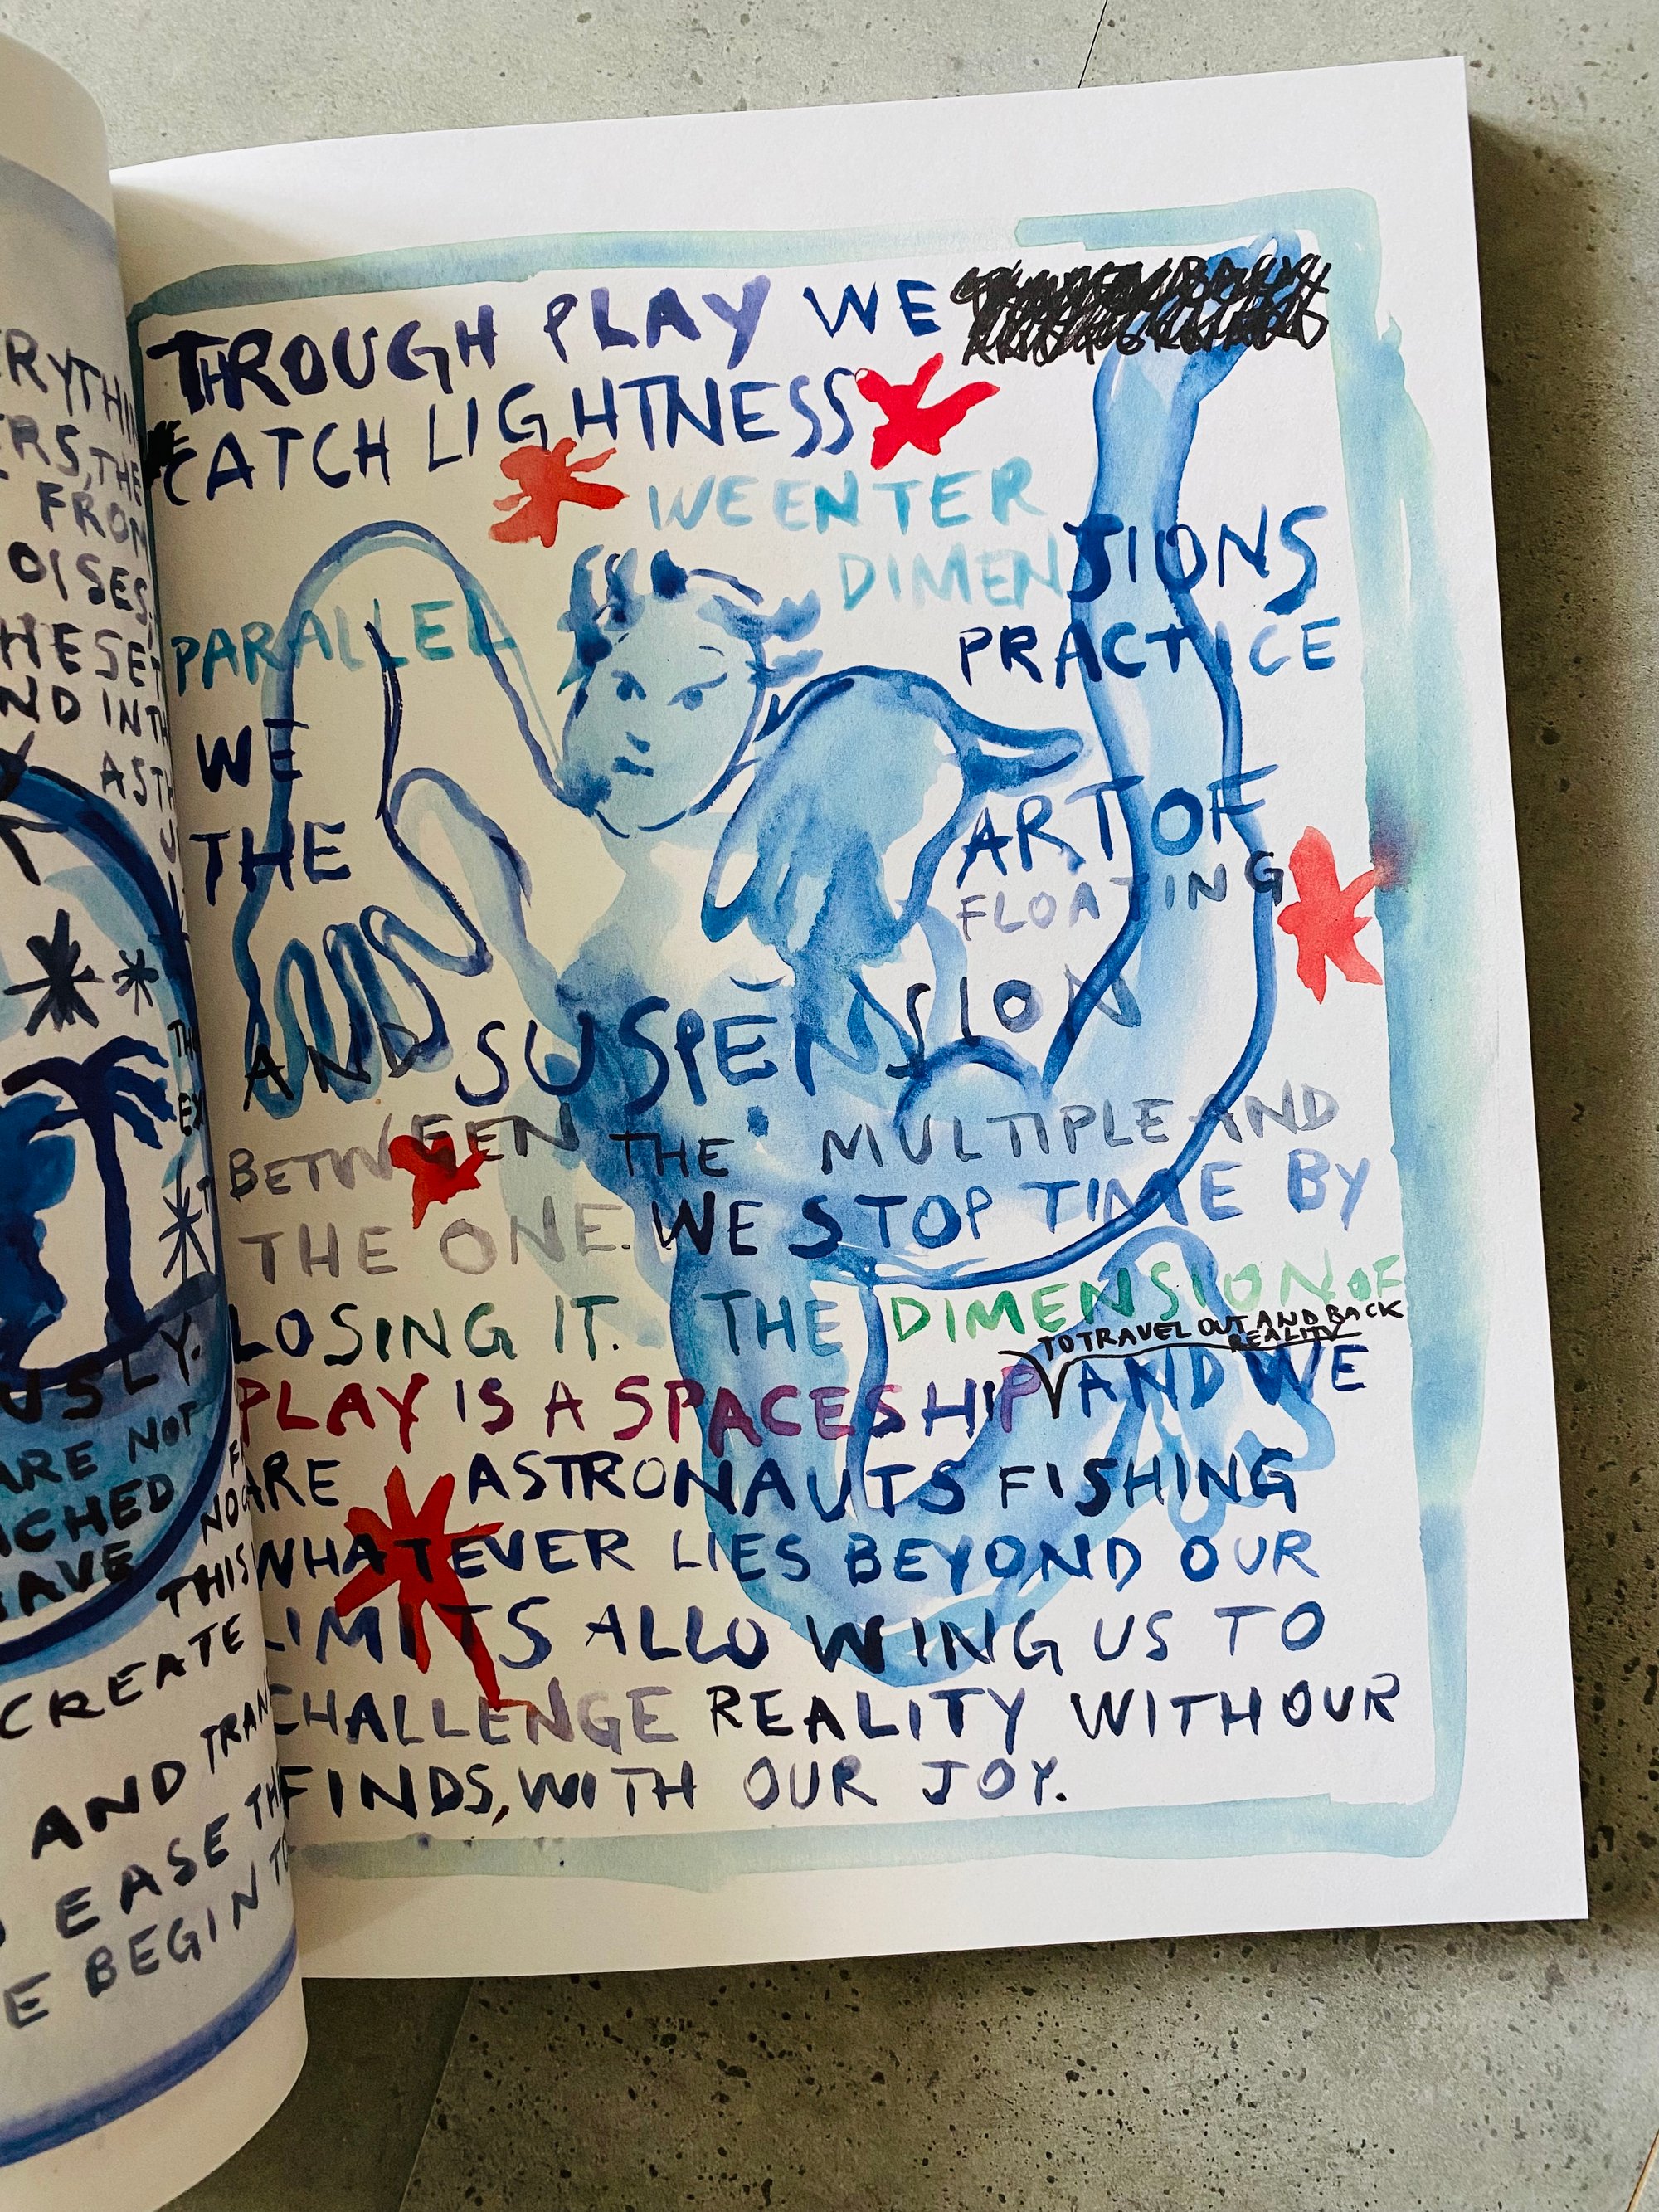 ERYTHIN
ERS, THE
FROM
OISES.
HESE
ND IN TH
AS TH
USLY.
ARE NOT
ACHED
AVE
THIS
CREATE
AND TRAN
EASE TH
E BEGIN TO
THROUGH PLAY WE
CATCH LIGHTNESS
WE ENTER
PARALLEL DIMENSIONS
WE PRACTICE
THE ART OF
FLOATING
AND SUSPENSION
BETWEEN THE MULTIPLE AND
THE ONE. WE STOP TIME BY
LOSING IT. THE DIMENSION OF
TO TRAVEL OUT AND BACK
REALITY
PLAY IS A SPACESHIP AND WE
ARE ASTRONAUTS FISHING
WHATEVER LIES BEYOND OUR
LIMITS ALLOWING US TO
CHALLENGE REALITY WITH OUR
FINDS, WITH OUR JOY.